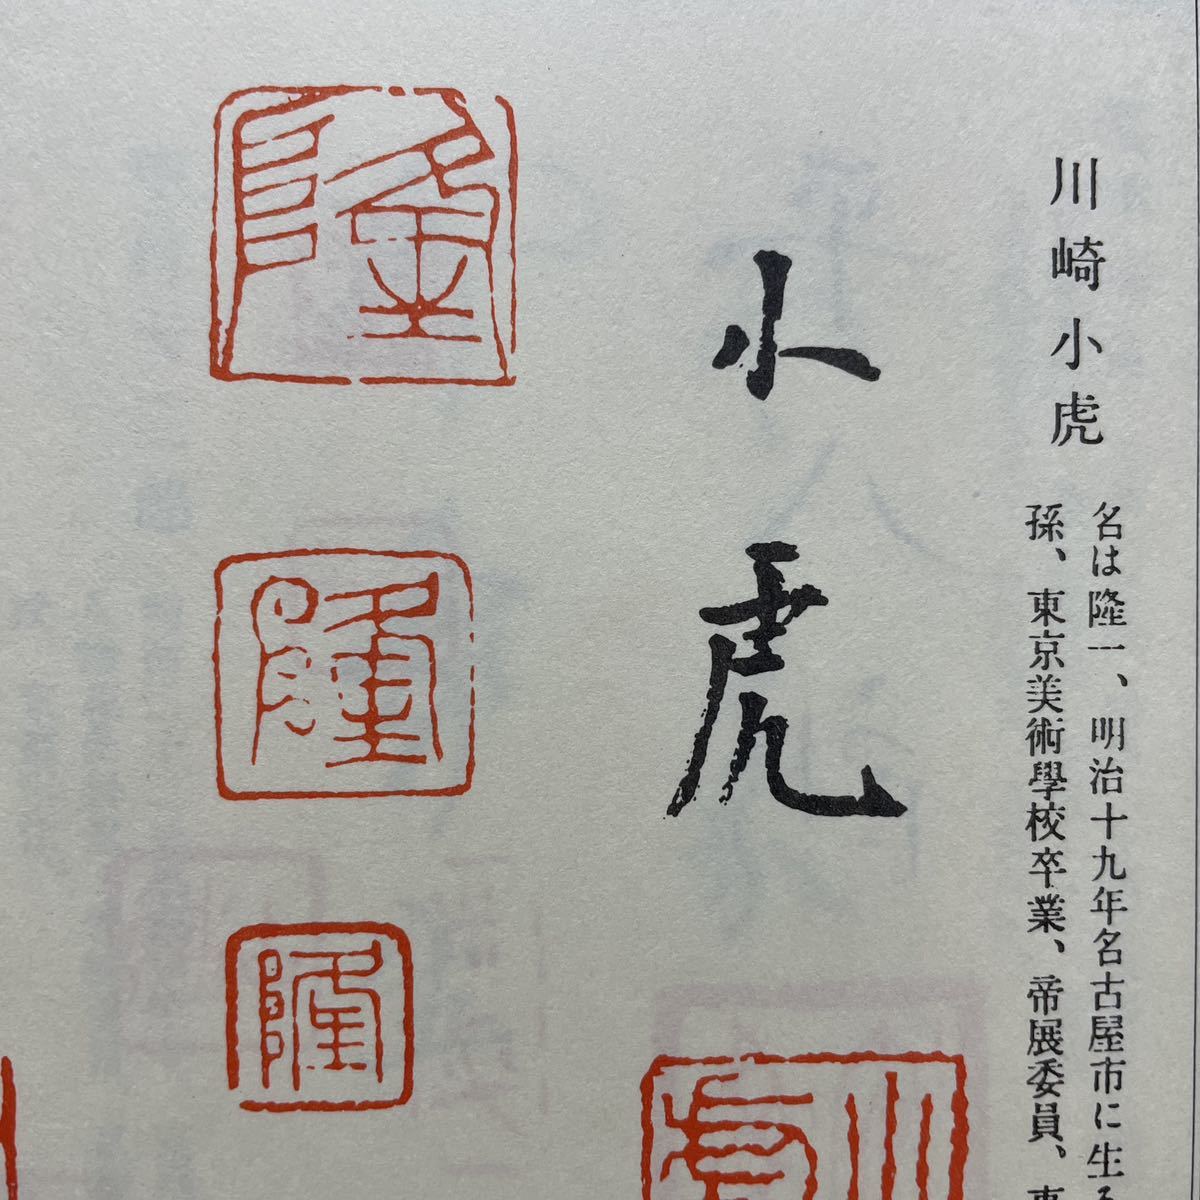 川崎小虎
名は隆一、明治十九年名古屋市に生
孫、東京美術學校卒業、帝展委員、
小虎
隆
隆
隆